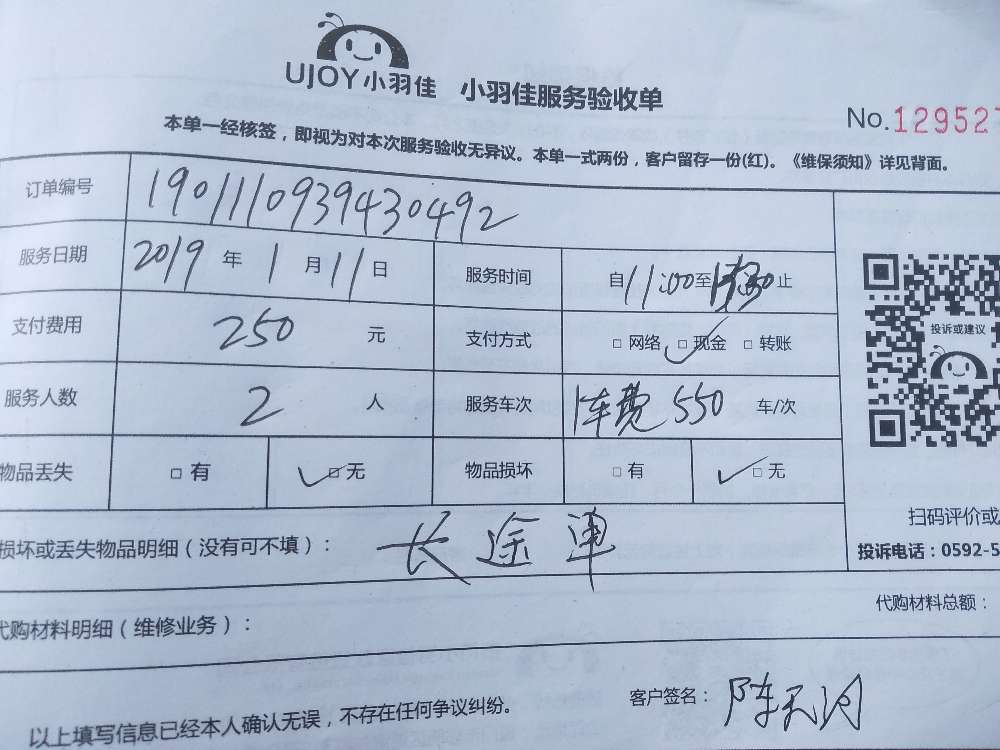 UJOY小羽佳 小羽佳服务验收单
No.129527
本单一经核签，即视为对本次服务验收无异议。本单一式两份，客户留存一份(红)。《维保须知》详见背面。
订单编号 190111093943 0492
服务日期 2019 年 1 月 11 日 服务时间 自 11:00 至 止
支付费用 250 元 支付方式 □ 网络 □ 现金 □ 转账
投诉或建议
服务人数 2 人 服务车次 车费 550 车/次
物品丢失 □ 有 □ 无 物品损坏 □ 有 □ 无
扫码评价或
损坏或丢失物品明细（没有可不填）： 长途单
投诉电话：0592-5
代购材料总额：
代购材料明细（维修业务）：
客户签名：
以上填写信息已经本人确认无误，不存在任何争议纠纷。